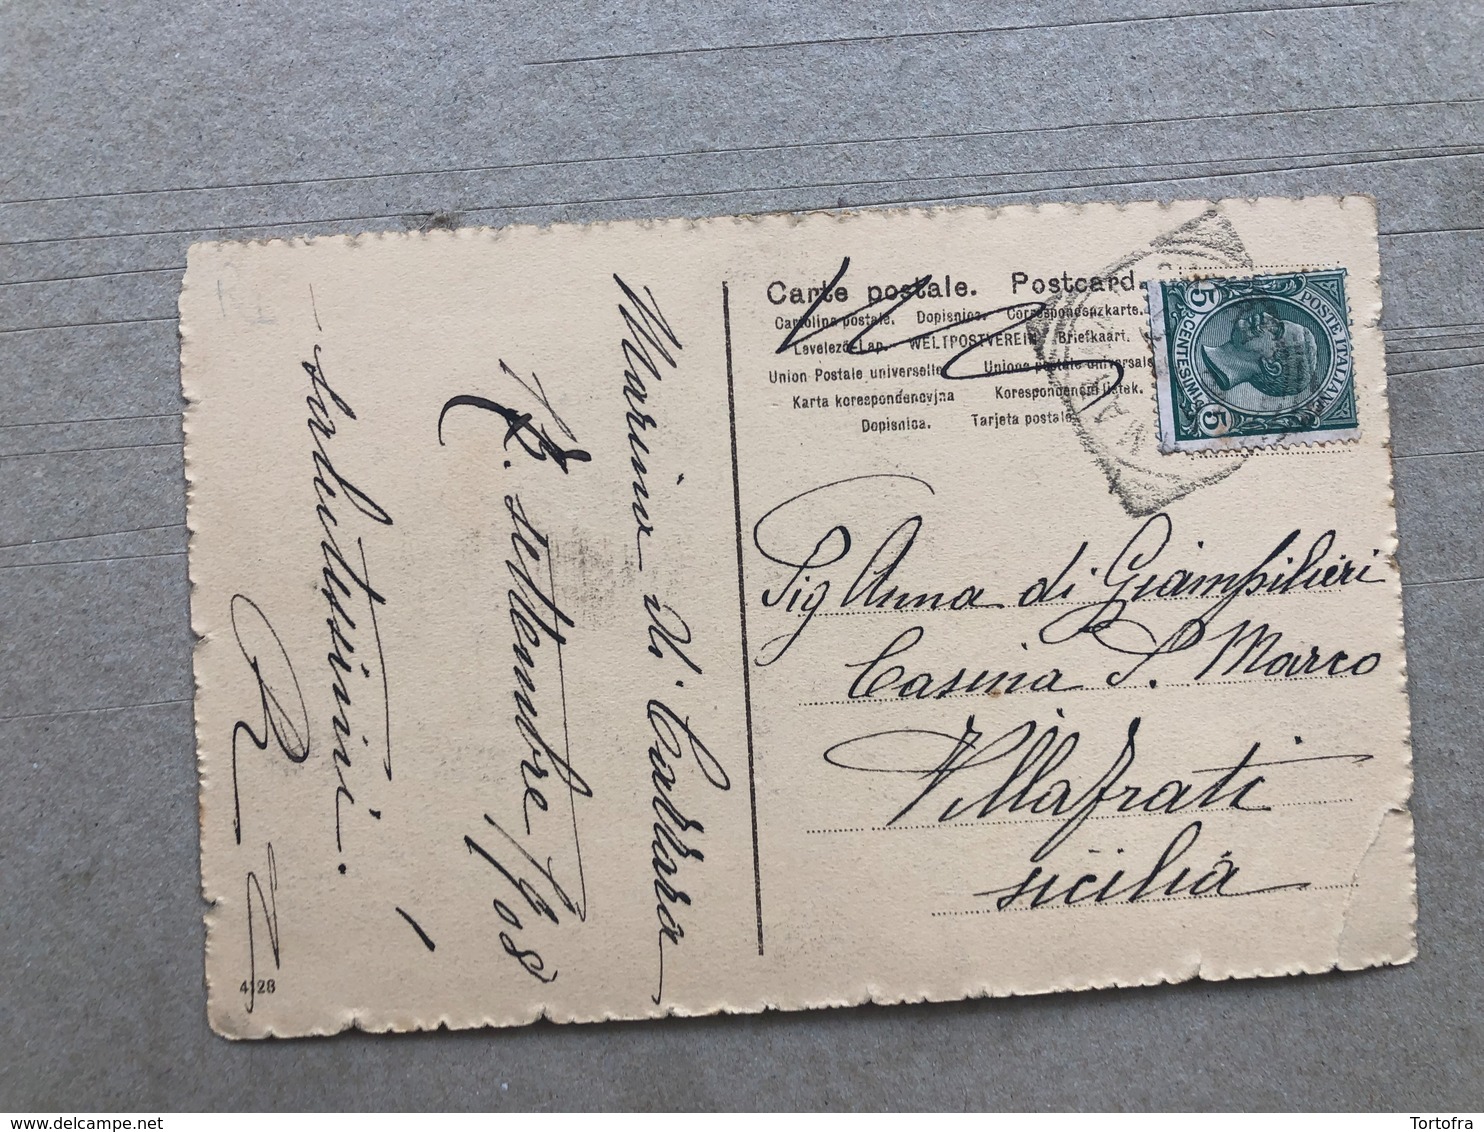 Marina di Carrara
12. settembre 1908
- salutissimi.
4128
Carte postale. Postcard.
Cartolina postale. Dopisnica. Correspondenzkarte.
Levelező-Lap. WELTPOSTVEREIN Briefkaart.
Union Postale universelle Unione postale universale
Karta korespondencyjna Korespondenční lístek.
Dopisnica. Tarjeta postale
POSTE ITALIANE
CENTES 5 5
Sig Anna di Giampilieri
Casina S. Marco
Villafrati
Sicilia
Tortofra